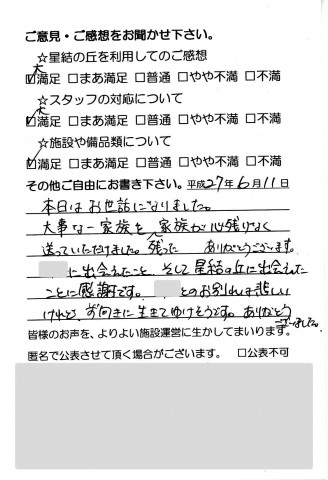 ご意見・ご感想をお聞かせ下さい。
☆星結の丘を利用してのご感想
大
☑満足 □まあ満足 □普通 □やや不満 □不満
☆スタッフの対応について
大
☑満足 □まあ満足 □普通 □やや不満 □不満
☆施設や備品類について
☑満足 □まあ満足 □普通 □やや不満 □不満
その他ご自由にお書き下さい。平成27年6月11日
本日はお世話になりました。
大事な一家族を家族が心残りなく
送っていただけました。残った ありがとうございます。
に出会えたこと、そして星結の丘に出会えた
ことに感謝です。 とのお別れは悲しい
けれど、前向きに生きてゆけそうです。ありがとう
ございました。
皆様のお声を、よりよい施設運営に生かしてまいります。
匿名で公表させて頂く場合がございます。 □公表不可